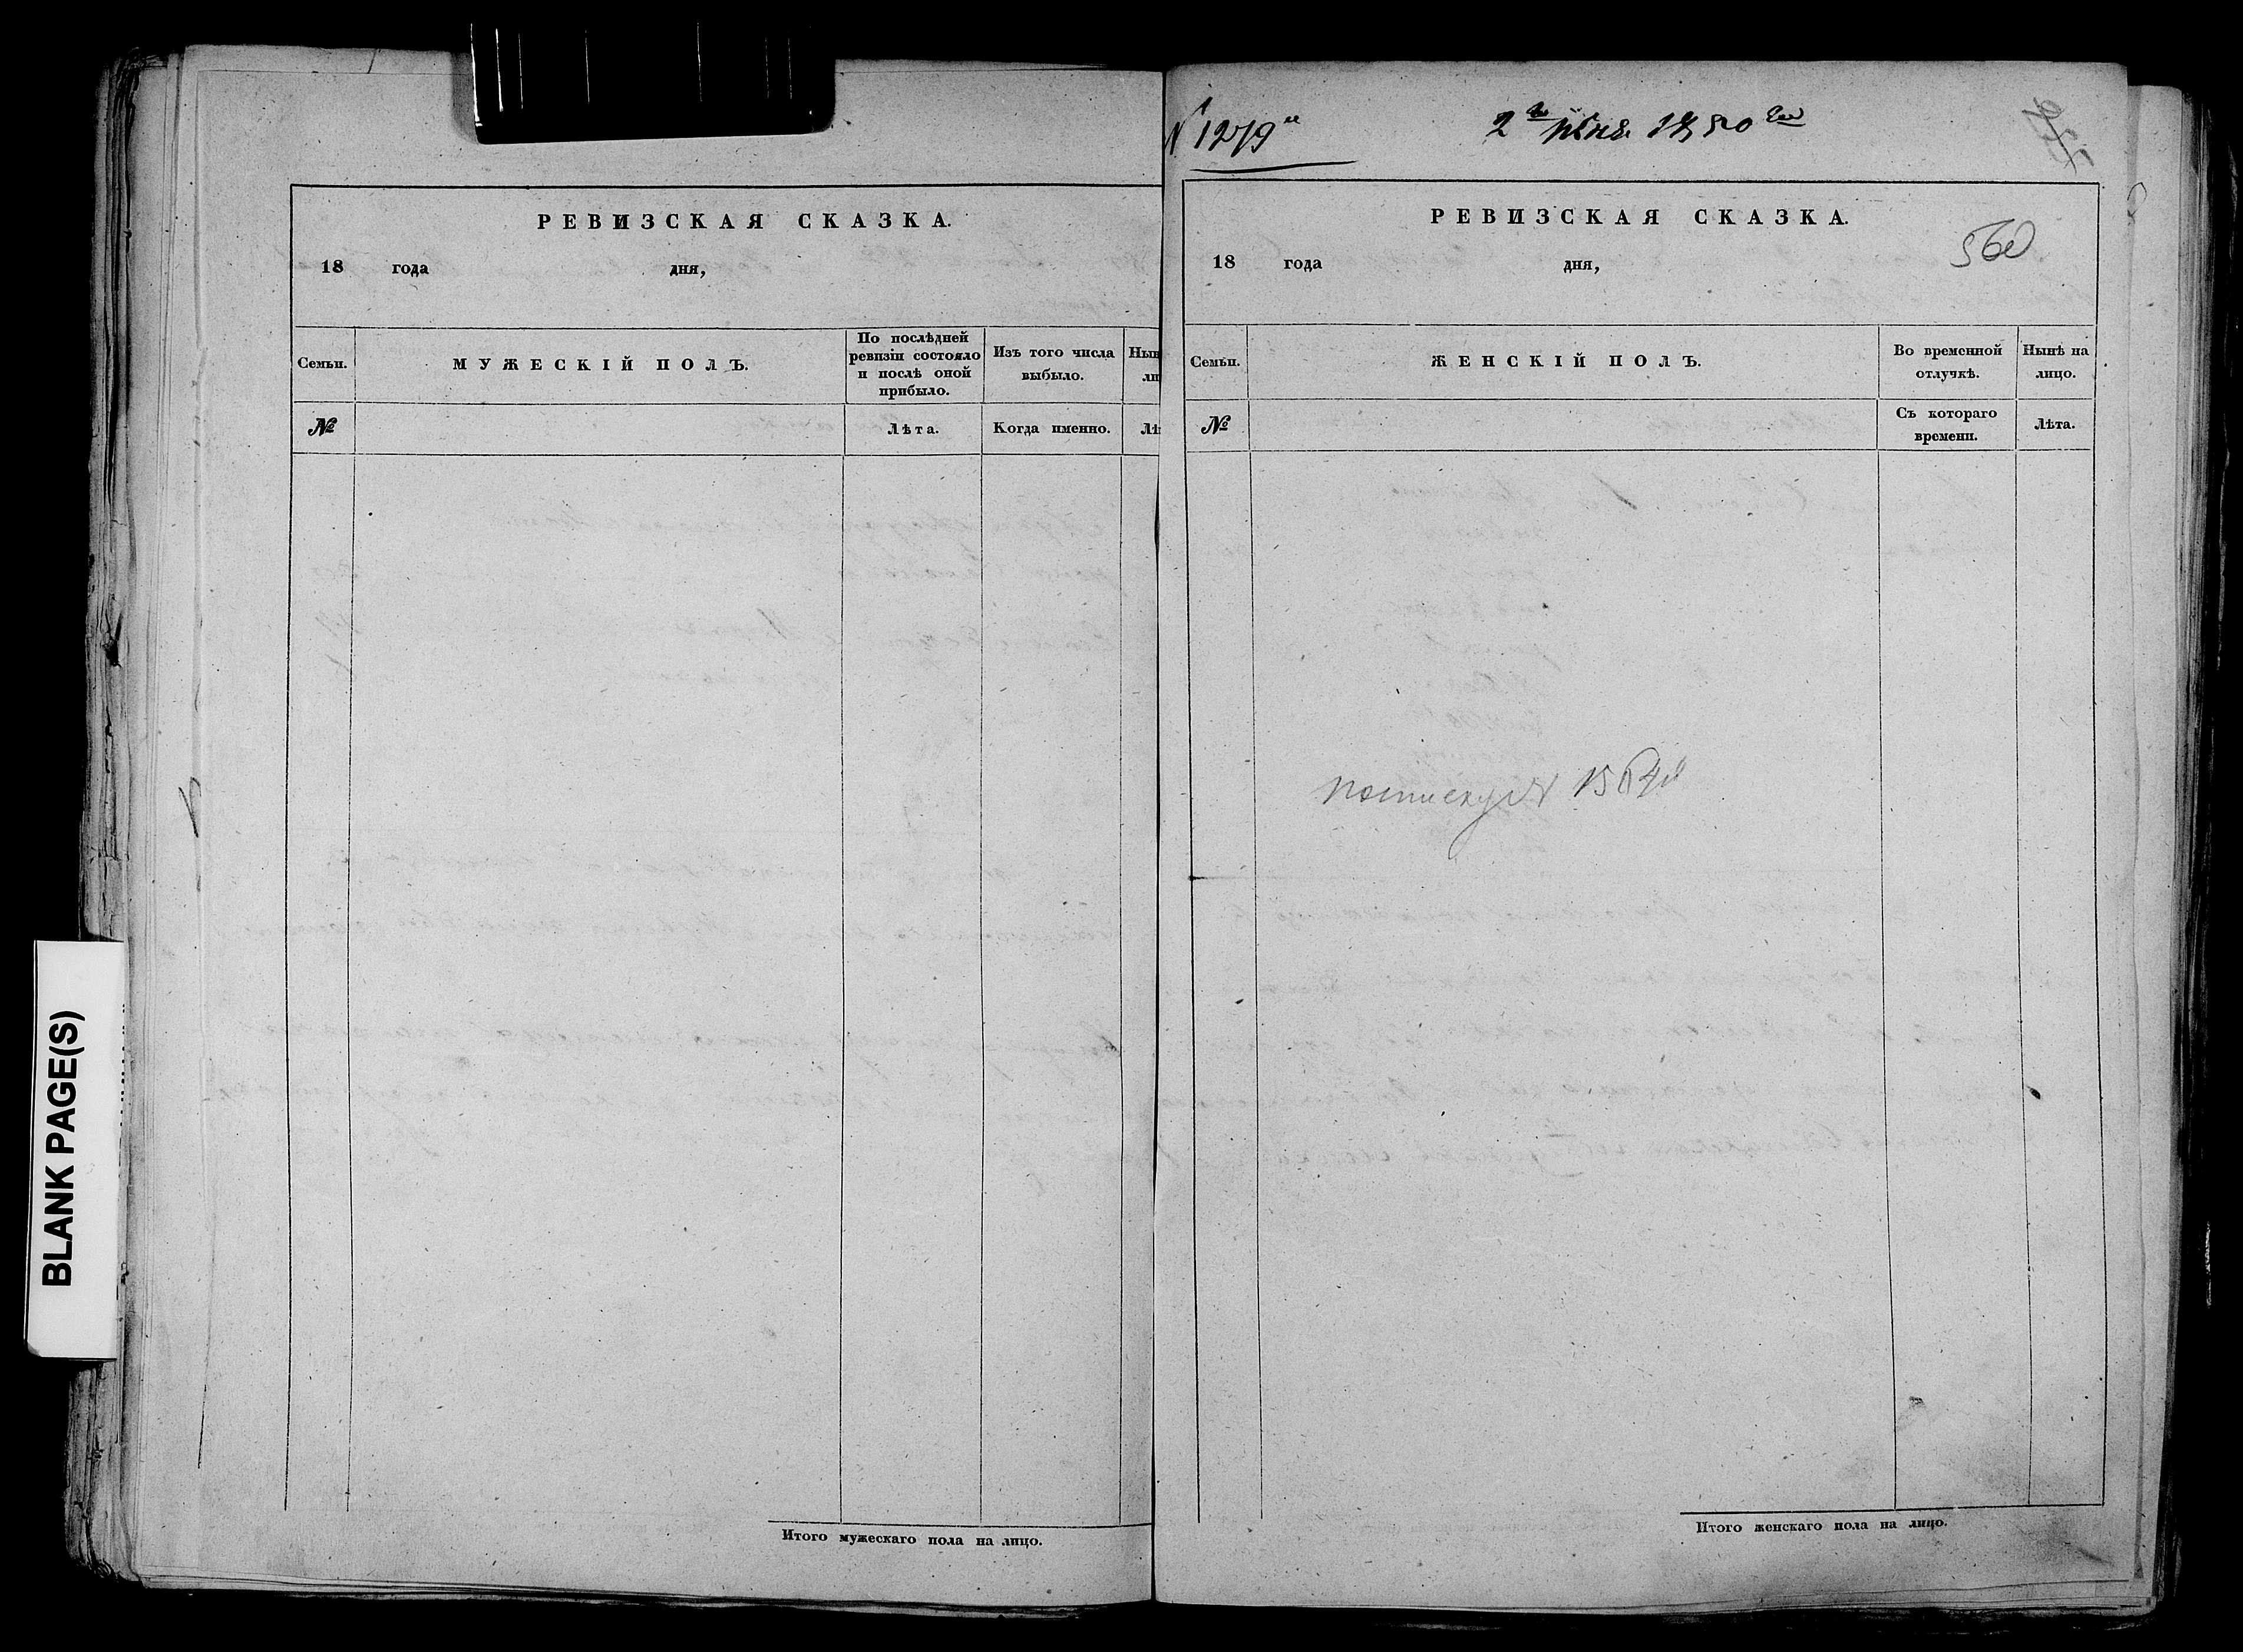 РЕВИЗСКАЯ СКАЗКА.
18 года дня,
Семьи.
МУЖЕСКІЙ ПОЛЪ.
По послѣдней ревизіи состояло и послѣ оной прибыло.
Изъ того числа выбыло.
№
Лѣта.
Когда именно.
Итого мужескаго пола на лицо.
N 1279
2 1850
РЕВИЗСКАЯ СКАЗКА.
560
18 года дня,
Семьи.
ЖЕНСКІЙ ПОЛЪ.
Во временной отлучкѣ.
Нынѣ на лицо.
№
Съ котораго времени.
Лѣта.
Итого женскаго пола на лицо.
BLANK PAGE(S)